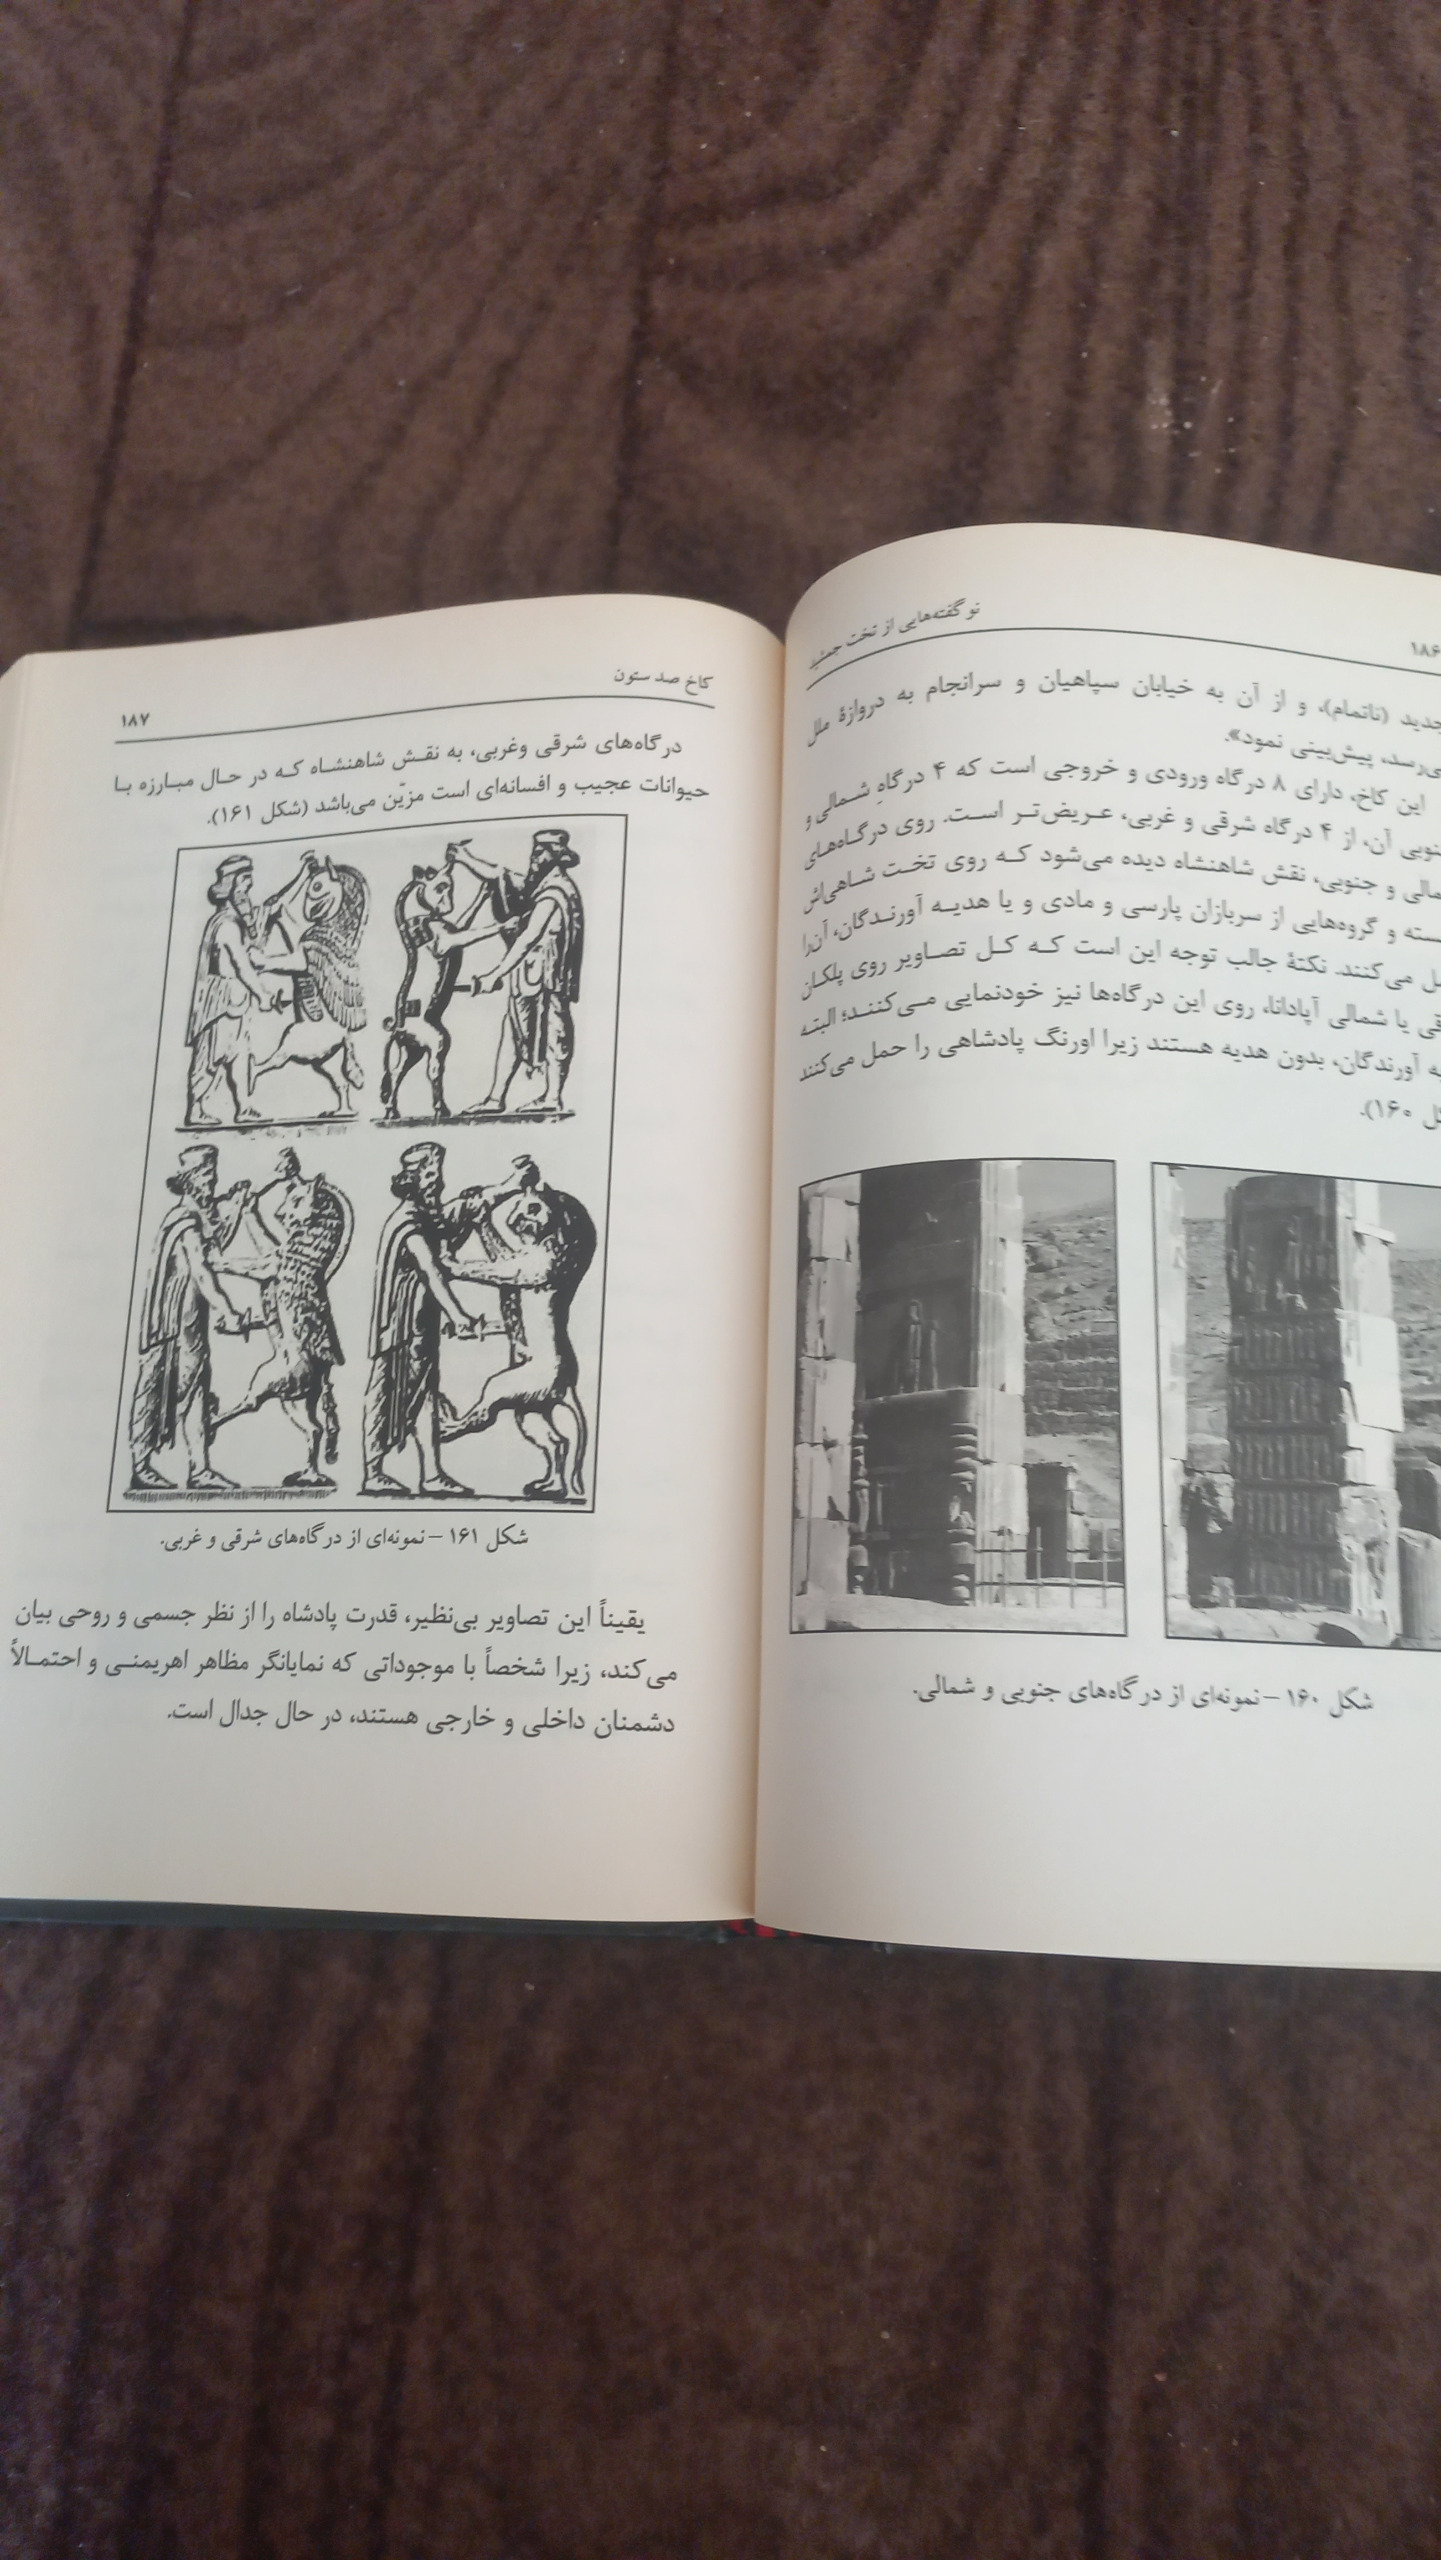 ۱۸۶
نو گفته‌هایی از تخت جمشید
جدید (ناتمام)، و از آن به خیابان سپاهیان و سرانجام به دروازهٔ ملل
می‌رسد، پیش‌بینی نمود».
این کاخ، دارای ۸ درگاه ورودی و خروجی است که ۴ درگاهِ شمالی و
جنوبی آن، از ۴ درگاه شرقی و غربی، عریض‌تر است. روی درگاه‌های
شمالی و جنوبی، نقش شاهنشاه دیده می‌شود که روی تخت شاهی‌اش
و گروه‌هایی از سربازان پارسی و مادی و یا هدیه آورندگان، آن‌را
می‌کنند. نکتهٔ جالب توجه این است که کل تصاویر روی پلکان
یا شمالی آپادانا، روی این درگاه‌ها نیز خودنمایی می‌کنند؛ البته
آورندگان، بدون هدیه هستند زیرا اورنگ پادشاهی را حمل می‌کنند
۱۶۰).
شکل ۱۶۰ – نمونه‌ای از درگاه‌های جنوبی و شمالی.
کاخ صد ستون
۱۸۷
درگاه‌های شرقی وغربی، به نقش شاهنشاه که در حال مبارزه با
حیوانات عجیب و افسانه‌ای است مزیّن می‌باشد (شکل ۱۶۱).
شکل ۱۶۱ – نمونه‌ای از درگاه‌های شرقی و غربی.
یقیناً این تصاویر بی‌نظیر، قدرت پادشاه را از نظر جسمی و روحی بیان
می‌کند، زیرا شخصاً با موجوداتی که نمایانگر مظاهر اهریمنی و احتمالاً
دشمنان داخلی و خارجی هستند، در حال جدال است.